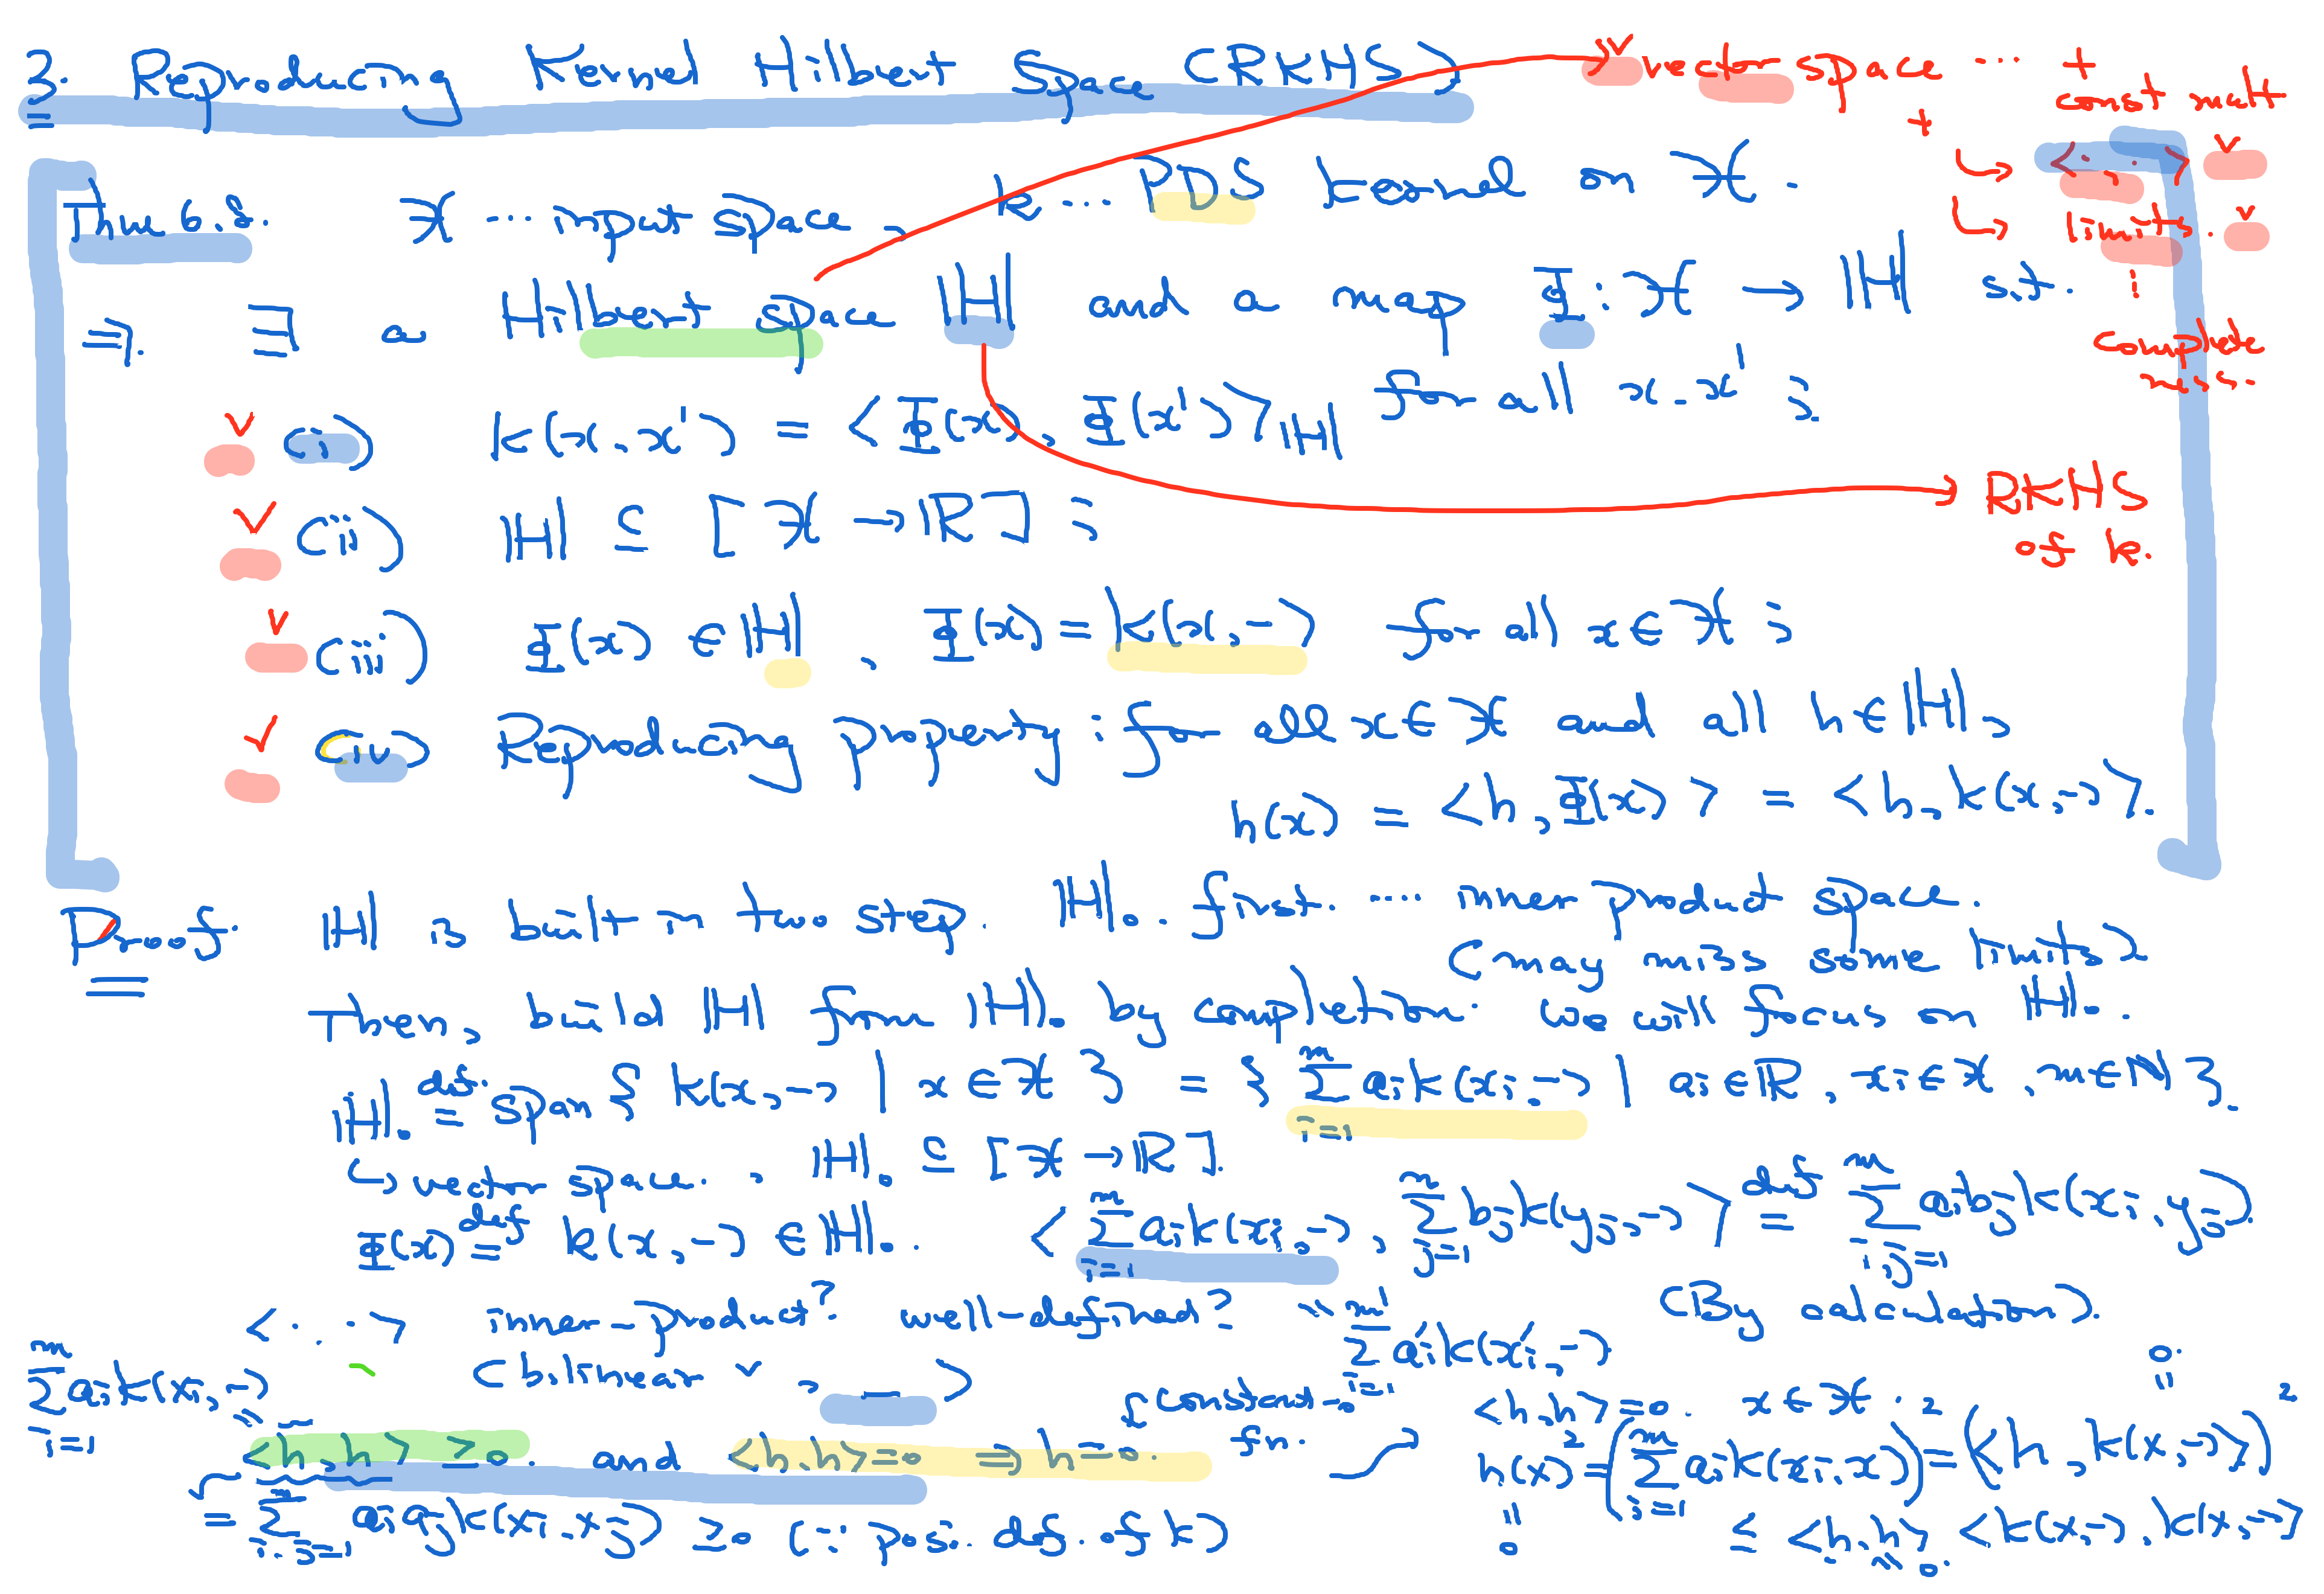 3. Reproducing Kernel Hilbert Space (RKHS)
vector space ... +
const mult
+
↳ <·,·>
↳ limits.
completeness.
Thm 6.8. X ... input space, k ... PDS kernel on X.
⇒ ∃ a Hilbert space H and a map Φ: X → H s.t.
(i) k(x,x') = <Φ(x), Φ(x')>_H for all x,x';
(ii) H ⊆ [X → R];
RKHS
of k.
(iii) Φ(x) ∈ H, Φ(x) = k(x,-) for all x ∈ X;
(iv) Reproducing property: for all x ∈ X and all h ∈ H,
h(x) = <h, Φ(x)> = <h, k(x,-)>.
Proof. H is built in two step. H₀. first. .... inner product space.
(may miss some limits)
Then, build H from H₀ by completion. We will focus on H₀.
H₀ def.= span{ k(x,-) | x ∈ X } = { Σ_{i=1}^m a_i k(x_i,-) | a_i ∈ R, x_i ∈ X, m ∈ N }.
↳ vector space., H₀ ⊆ [X → R].
Φ(x) def= k(x,-) ∈ H₀. < Σ_{i=1}^m a_i k(x_i,-), Σ_{j=1}^m b_j k(y_j,-) > def= Σ_{i,j=1}^m a_i b_j k(x_i,y_j).
<·,·> inner-product? well-defined? (By calculation).
(bilinear ✓, _ )
Σ_{i=1}^m a_i k(x_i,-)
Σ_{i=1}^{m'} a_i' k(x_i',-)
<h,h> ≥ 0. and <h,h> = 0 ⇒ h = 0.
constant 0 fn.
= Σ_{i,j=1}^m a_i a_j k(x_i,x_j) ≥ 0 (∵ pos. def. of k)
<h,h> = 0. x ∈ X.
0 = h(x)² = (Σ_{i=1}^m a_i k(x_i,x))² = (<h, k(x,-)>)²
≤ <h,h> <k(x,-), k(x,-)>
0.